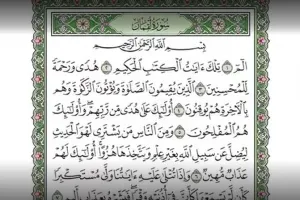 سُورَةُ لُقْمَانَ
بِسْمِ اللَّهِ الرَّحْمَٰنِ الرَّحِيمِ
الٓمٓ ١ تِلْكَ ءَايَٰتُ ٱلْكِتَٰبِ ٱلْحَكِيمِ ٢ هُدًى وَرَحْمَةً
لِّلْمُحْسِنِينَ ٣ ٱلَّذِينَ يُقِيمُونَ ٱلصَّلَوٰةَ وَيُؤْتُونَ ٱلزَّكَوٰةَ وَهُم
بِٱلْأَخِرَةِ هُمْ يُوقِنُونَ ٤ أُو۟لَٰٓئِكَ عَلَىٰ هُدًى مِّن رَّبِّهِمْ وَأُو۟لَٰٓئِكَ
هُمُ ٱلْمُفْلِحُونَ ٥ وَمِنَ ٱلنَّاسِ مَن يَشْتَرِى لَهْوَ ٱلْحَدِيثِ
لِيُضِلَّ عَن سَبِيلِ ٱللَّهِ بِغَيْرِ عِلْمٍ وَيَتَّخِذَهَا هُزُوًا أُو۟لَٰٓئِكَ لَهُمْ
عَذَابٌ مُّهِينٌ ٦ وَإِذَا تُتْلَىٰ عَلَيْهِ ءَايَٰتُنَا وَلَّىٰ مُسْتَكْبِرًا
كَأَن لَّمْ يَسْمَعْهَا كَأَنَّ فِىٓ أُذُنَيْهِ وَقْرًا فَبَشِّرْهُ بِعَذَابٍ أَلِيمٍ